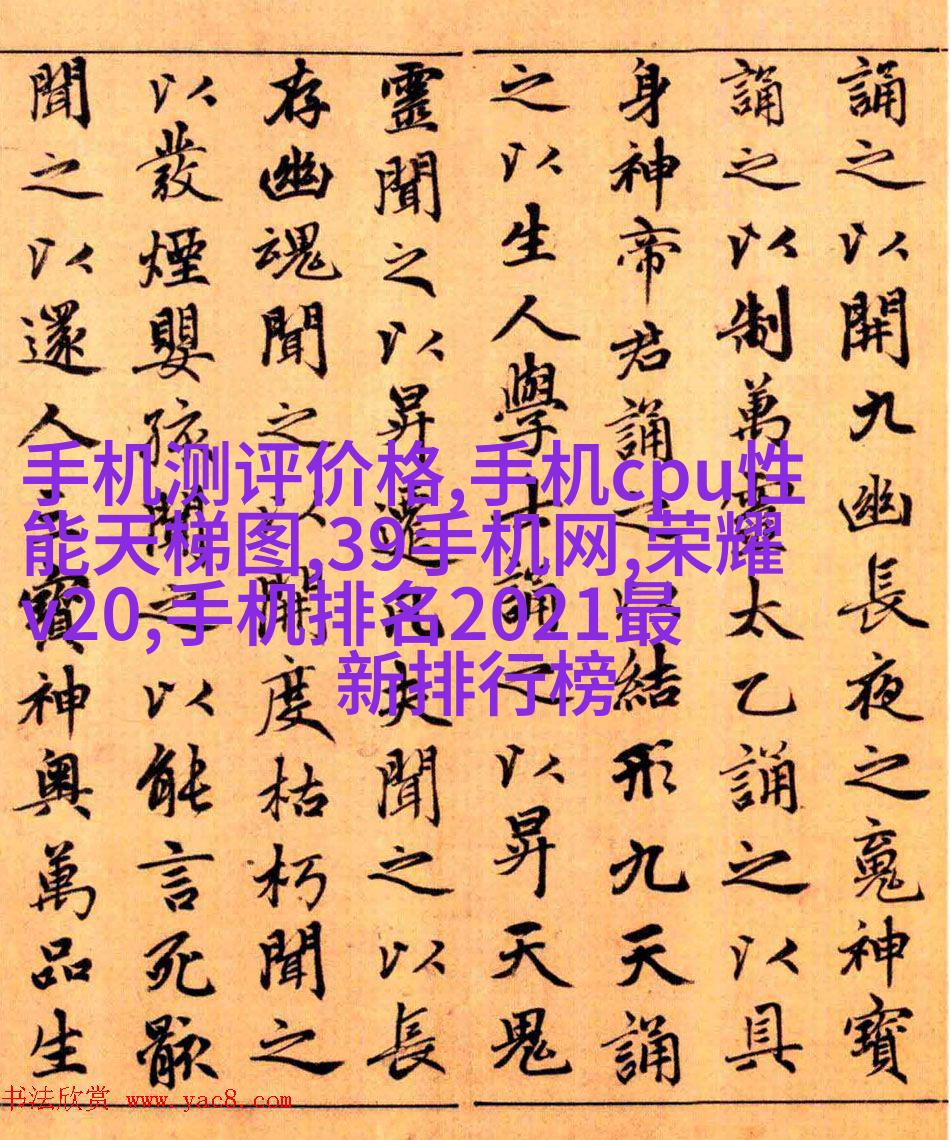 誦之以開九幽長夜之魂神寶
誦之以制萬靈太乙誦之以具
身神帝君誦之以結形九天誦
之以生人學士誦之以昇天鬼
靈聞之以昇遷凡夫聞之以長
存幽魂聞之以開度枯朽聞之
以發煙嬰孩聞之以能言死骸
聞之以還人寶神奧萬品生
手机测评价格,手机cpu性
能天梯图,39手机网,荣耀
v20,手机排名2021最
新排行榜
书法欣赏 www.yac8.com